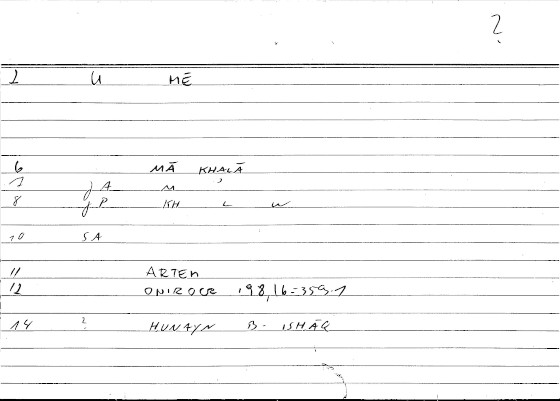 ?
2 U MĒ
6 MĀ KHALĀ
7 jA M
8 jP KH L W
10 SA
11 ARTEM
12 ONIROCR 198,16=359.1
14 ? ḤUNAYN B. ISḤĀQ